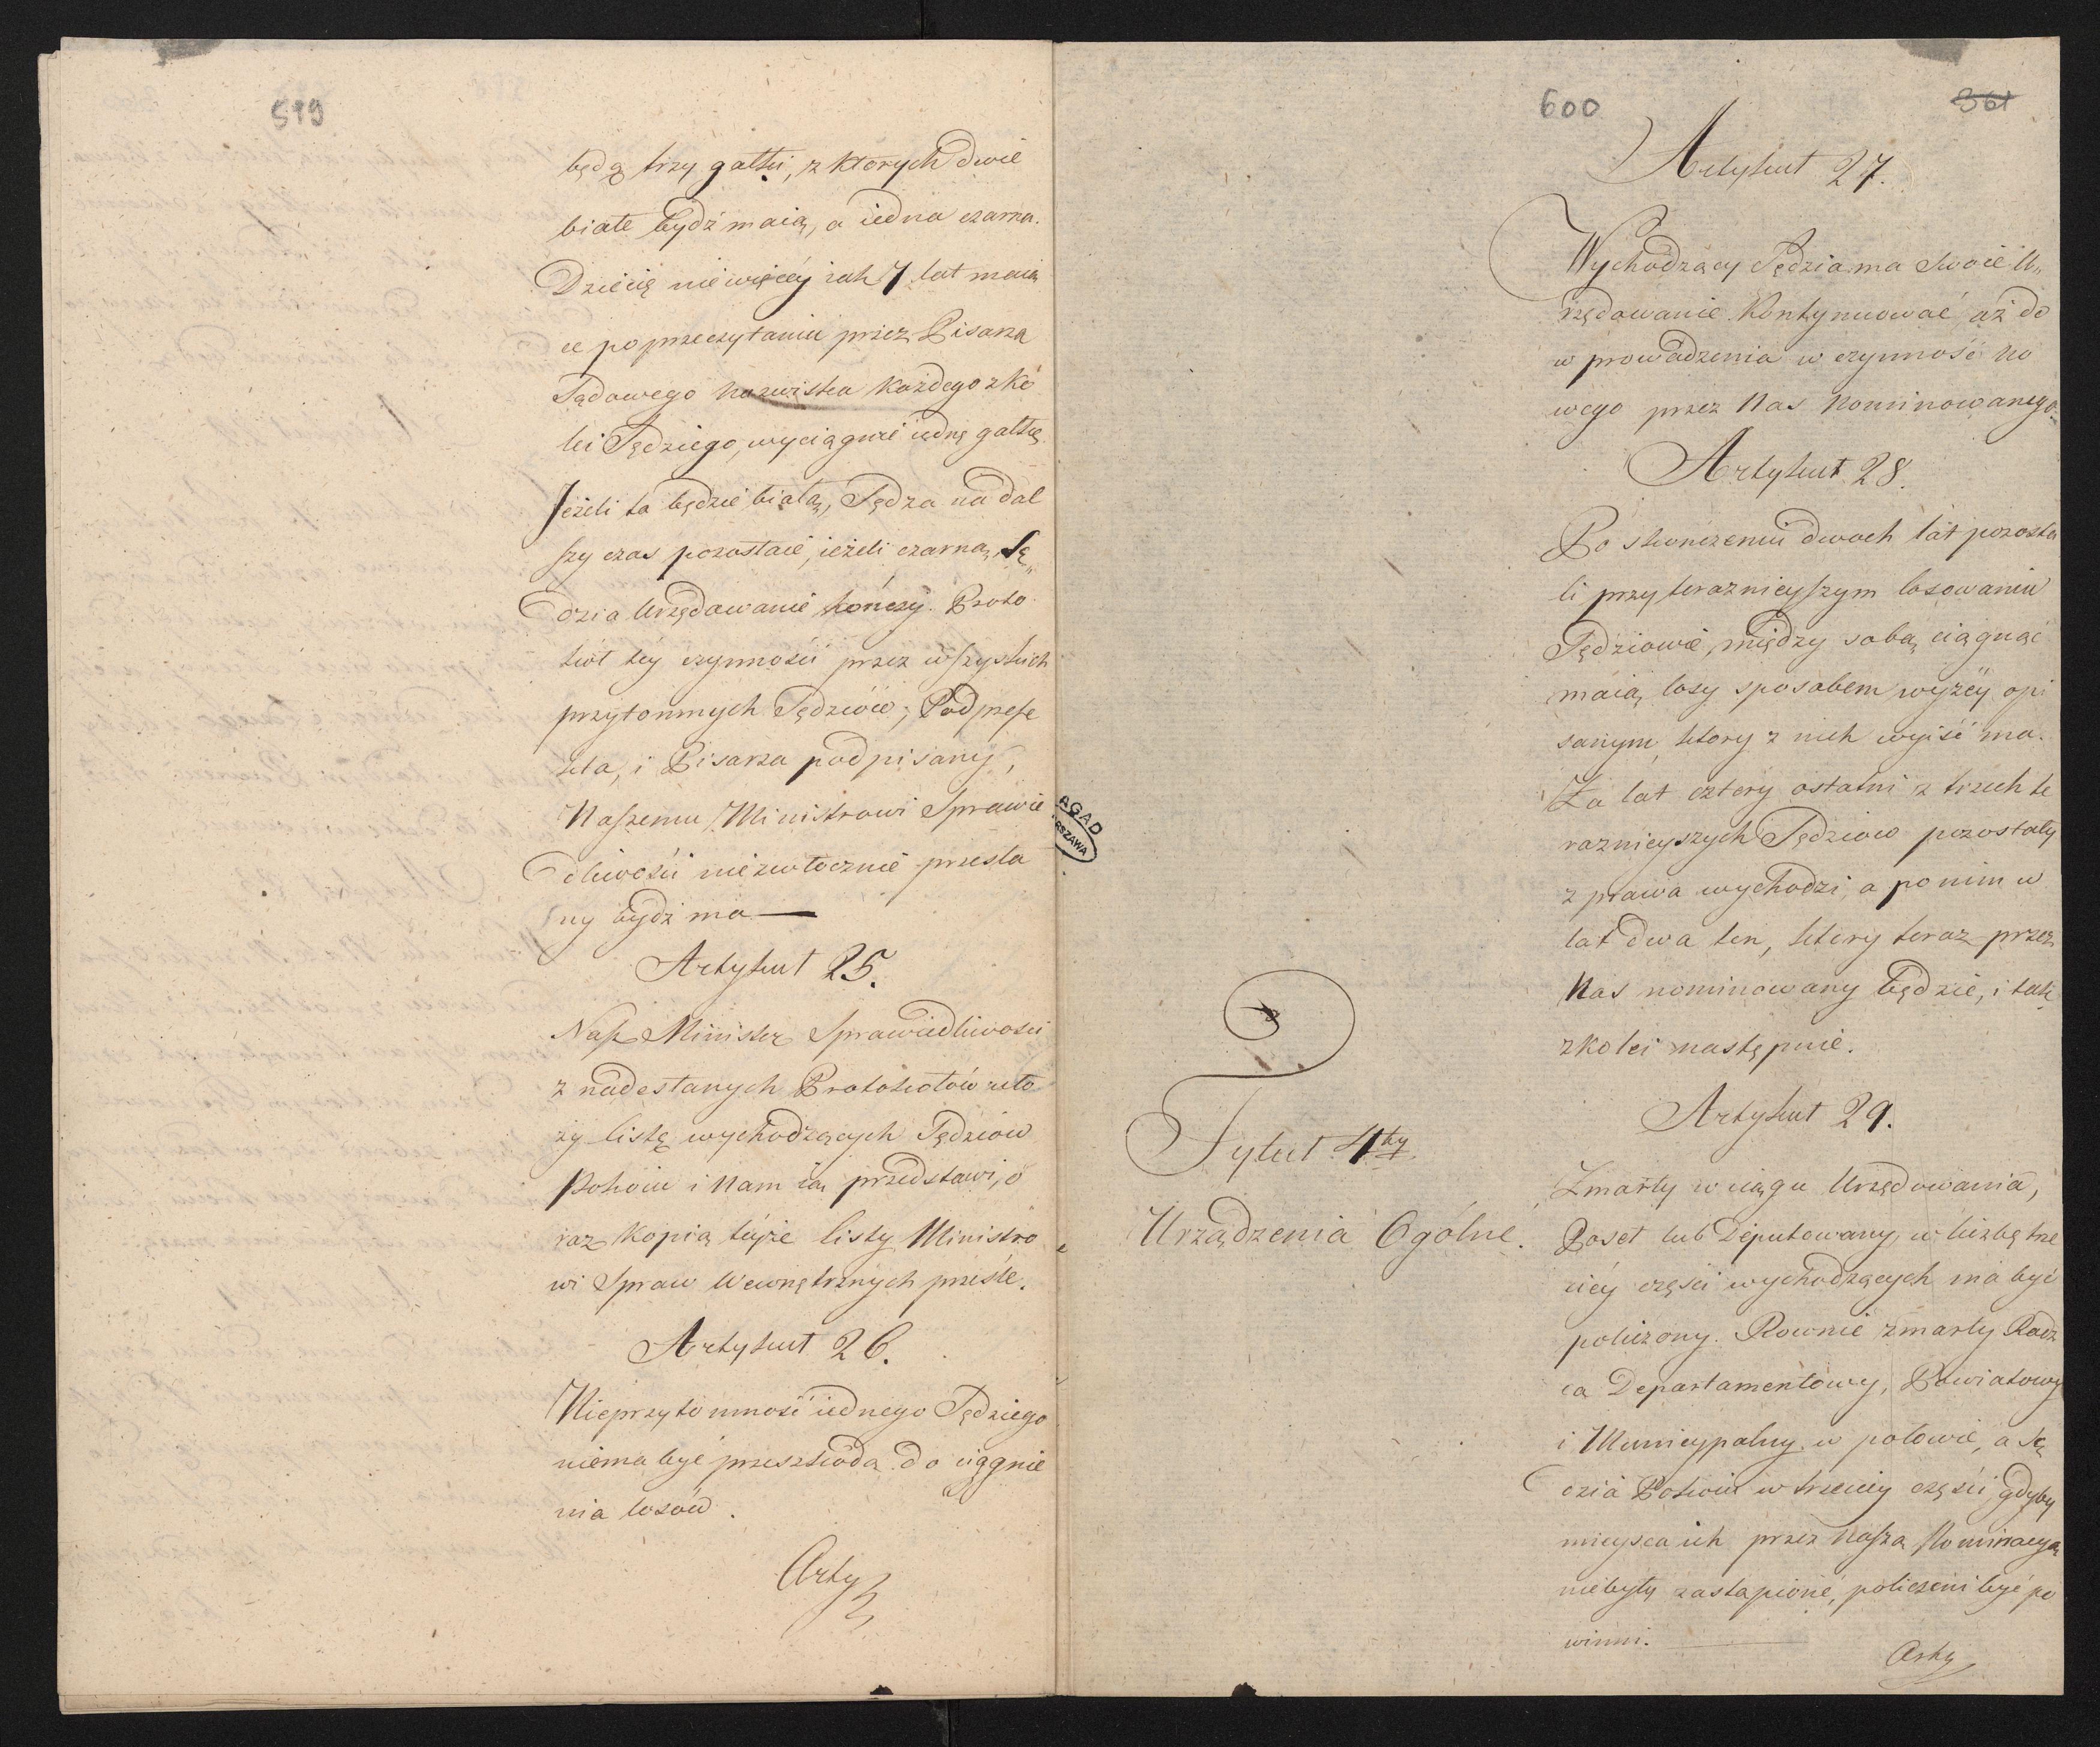 519
będą trzy gałki, z ktorych dwie
białe bydź maią, a iedna czarna.
Dziecię niewięcéy iak 7 lat maią
ce po przeczytaniu przez Pisarza
Sądowego nazwiska każdego z ko
lei Sędziego, wyciągnie iednę gałkę.
Jeżeli ta będzie białą, Sędza na dal
szy czas pozostaie, ieżeli czarną, Sę„
dzia Urzędowanie kończy. Proto
kół téy czynności przez wszystkich
przytomnych Sędziów, Podprefe
kta, i Pisarza podpisany,
Naszemu Ministrowi Sprawie
dliwości niezwłocznie przesła
ny bydź ma —
Artykuł 25.
Nasz Minister Sprawiedliwości
z nadesłanych Protokołów uło
ży listę wychodzących Sędziow
Pokoiu i Nam ią przedstawi, o
raz kopią téyże listy Ministro
wi Spraw Wewnętrznych prześle.
Artykuł 26.
Nieprzytomność iednego Sędziego
niema być przeszkodą do ciągnie
nia losów.
Arty
600
361
Artykuł 27.
Wychodzący Sędzia ma swoie U„
rzędowanie kontynuować aż do
wprowadzenia w czynność no
wego przez Nas nominowanego.
Artykuł 28.
Po skończeniu dwoch lat pozosta
li przy teraznieyszym losowaniu
Sędziowie, między sobą ciągnąć
maią losy sposobem wyżéy opi
sanym, ktory z nich wyiść ma.
Za lat cztery ostatni z trzech te
raznieyszych Sędziow pozostały
z prawa wychodzi, a po nim w
lat dwa ten, ktory teraz przez
Nas nominowany będzie, i tak
zkolei następnie.
AGAD
RSZAWA
Tytuł 4ty
Urządzenia Ogólne.
Artykuł 29.
Zmarły w ciągu Urzędowania,
Poseł lub Deputowany, w liczbę trze
ciéy części wychodzących ma być
policzony. Rownie zmarły Radz
ca Departamentowy, Powiatowy
i Municypalny w połowie, a Sę
dzia Pokoiu w trzeciey części, gdyby
mieysca ich przez Naszą Nominacyą
niebyły zastąpione, policzeni być po
winni.
Arty